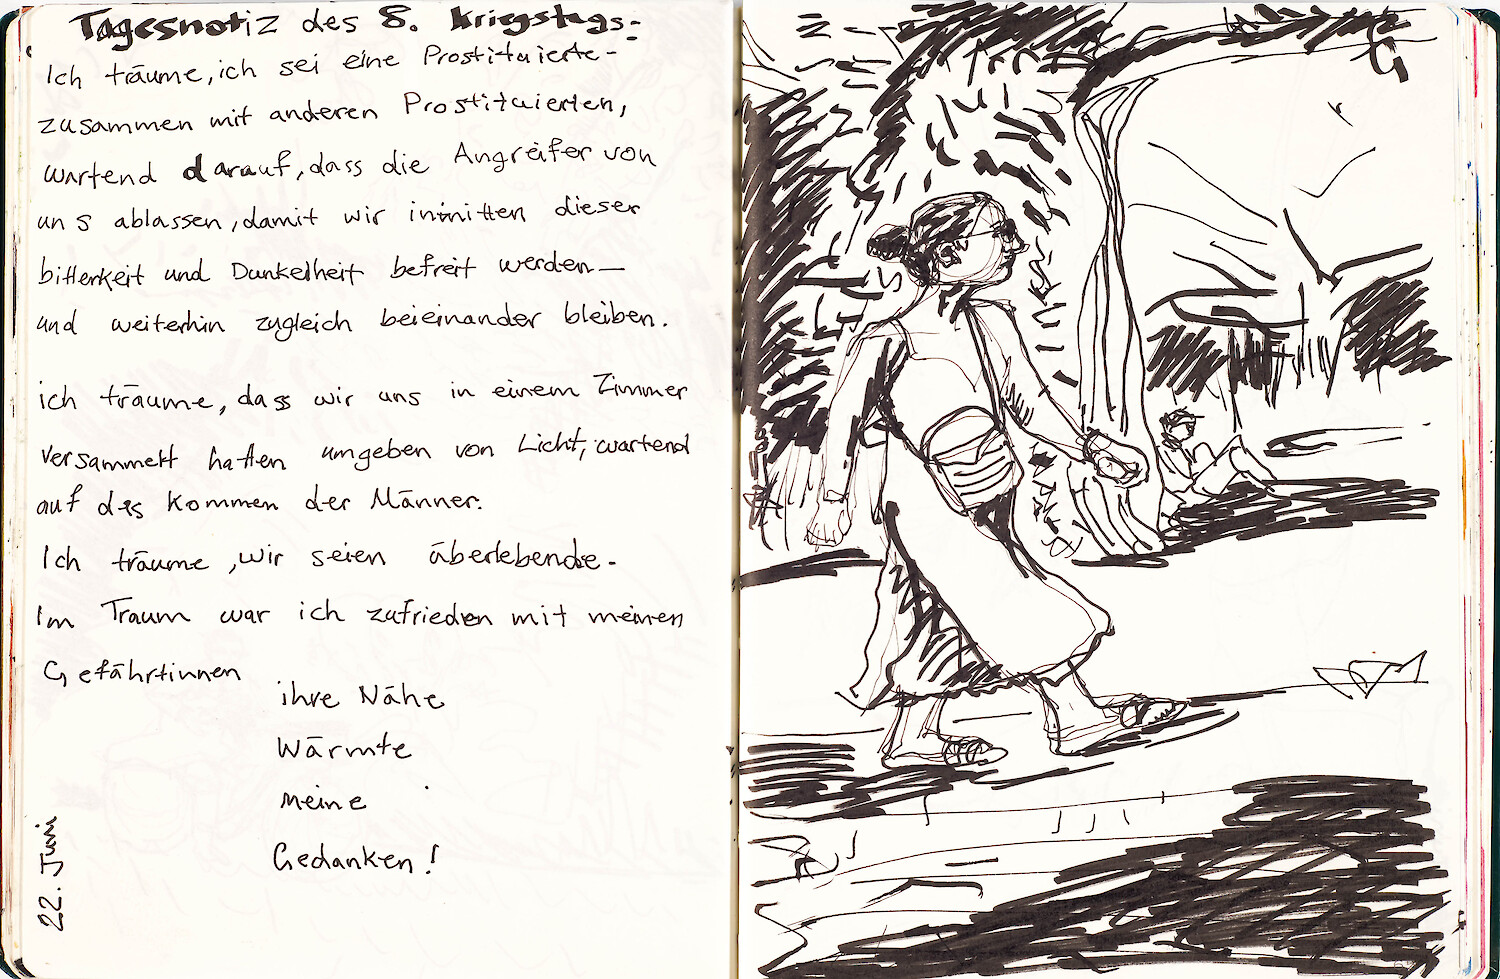 Tagesnotiz des 8. Kriegstags:
Ich träume, ich sei eine Prostituierte-
zusammen mit anderen Prostituierten,
wartend darauf, dass die Angreifer von
uns ablassen, damit wir inmitten dieser
bitterkeit und Dunkelheit befreit werden—
und weiterhin zugleich beieinander bleiben.
ich träume, dass wir uns in einem Zimmer
versammelt hatten umgeben von Licht, wartend
auf das Kommen der Männer.
Ich träume, wir seien überlebende.
Im Traum war ich zufrieden mit meinen
Gefährtinnen
ihre Nähe
Wärmte
meine
Gedanken!
22. Juni